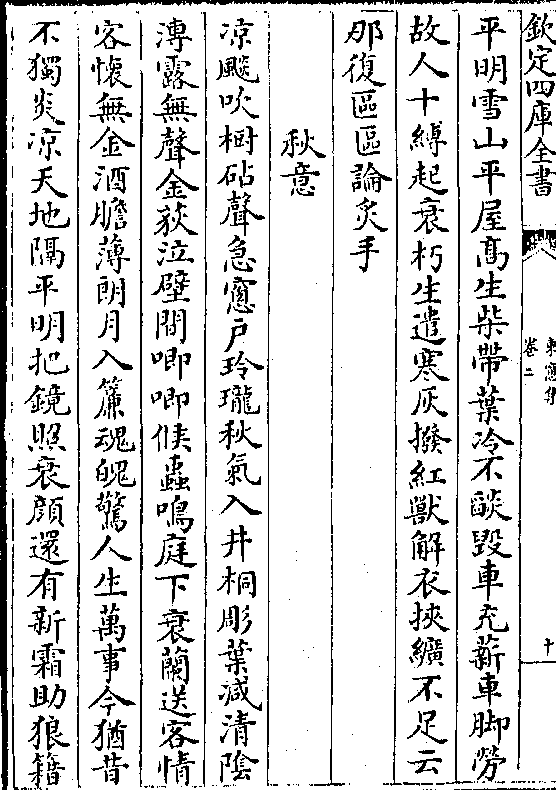 欽定四庫全書
東窻集
卷二
十
平明雪山平屋髙生柴帶葉冷不燄毀車充薪車脚勞
故人十縛起衰朽生遣寒灰撥紅獸解衣挾纊不足云
那復區區論炙手
秋意
凉颷吹樹砧聲急窻户玲瓏秋氣入井桐彫葉減清陰
漙露無聲金荻泣壁間唧唧候蟲鳴庭下衰蘭送客情
客懷無金酒膽薄朗月入簾魂魄驚人生萬事今猶昔
不獨炎凉天地隔平明把鏡照衰顔還有新霜助狼籍